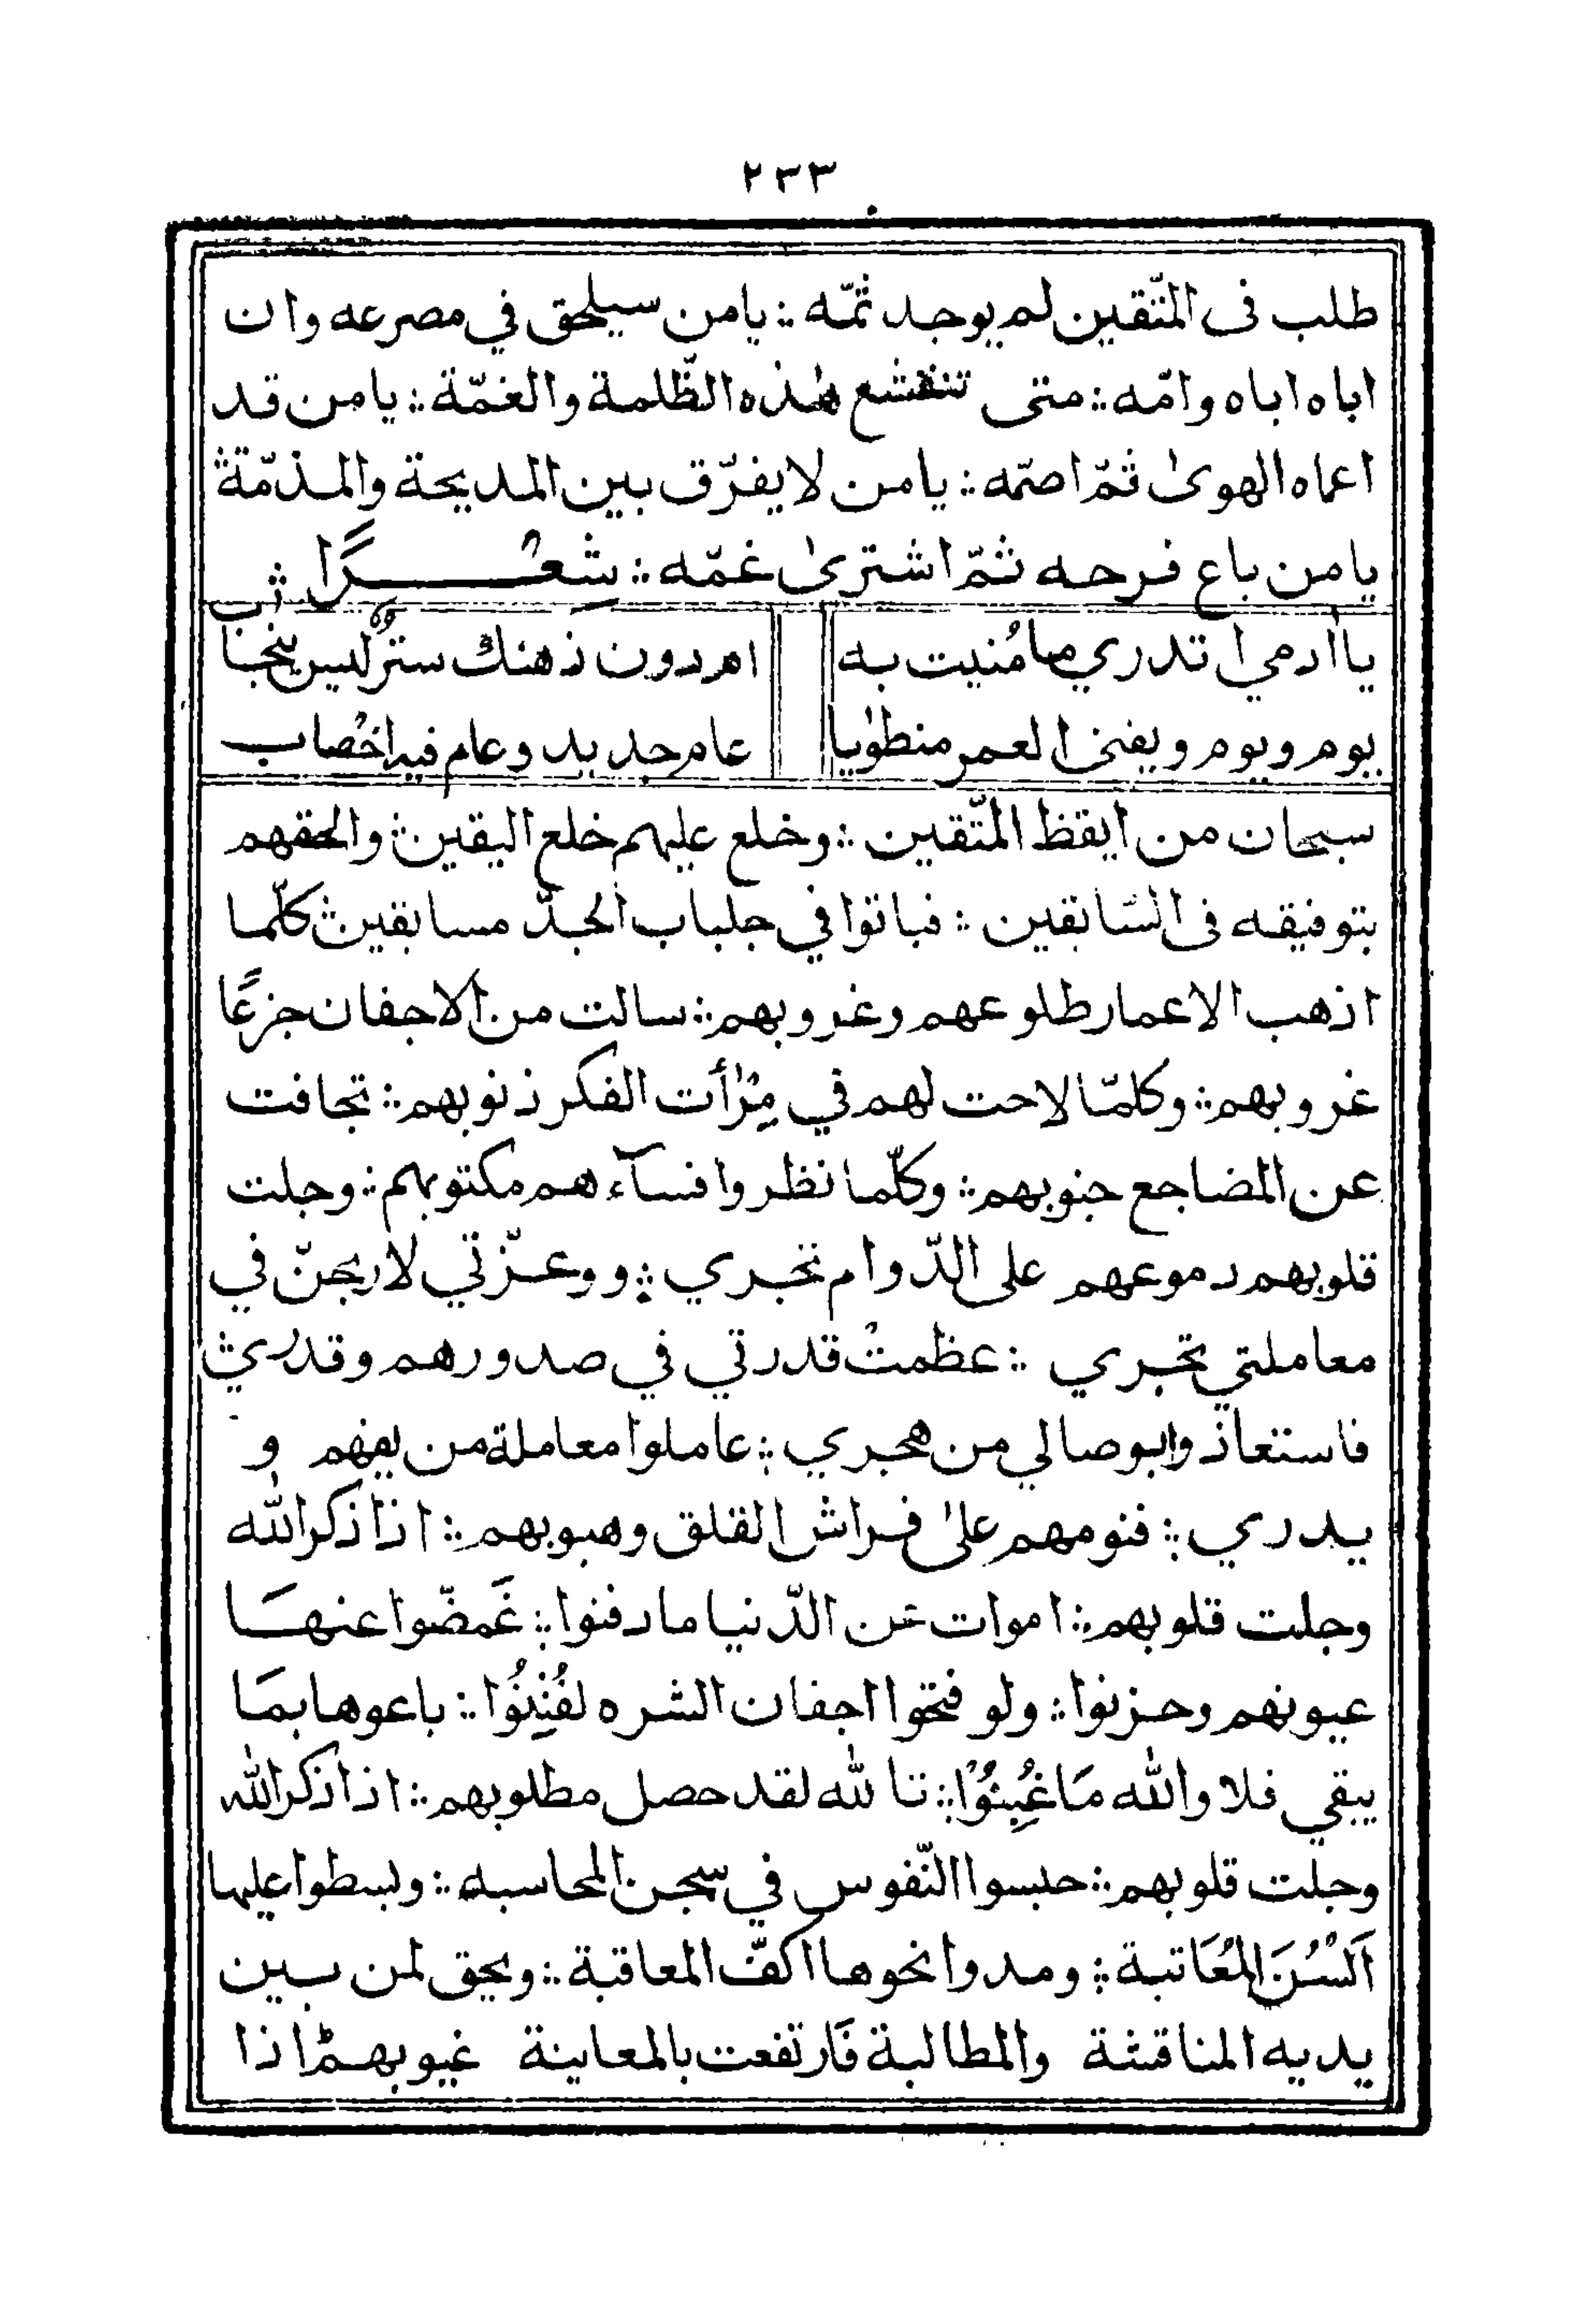 ٢٣٣
طلب فى المتّقين لم يوجد ثمّه ∴ يامن سيلحق في مصرعه وان
اباه اباه وامّه ∴ متى تنقشع هٰذه الظّلمة والغمّة ∴ يامن قد
اعماه الهوىٰ ثمّ اصمّه ∴ يامن لا يفرّق بين المديحة والمذمّة ∴
يامن باع فرحه ثمّ اشترىٰ غمّه ∴ شِعْرًا ∴
يا اٰدمي اتدري ما مُنيت به ام دون ذهنك سترٌ ليس ينجاب
يوم ويوم ويفنى العمر منطويا عام جديد وعام فيه اخصاب
سبحان من ايقظ المتّقين ∴ وخلع عليهم خلع اليقين ∴ والحقهم
بتوفيقه فى السّابقين ∴ فباتوا في جلباب الجدّ مسابقين ∴ كلّما
اذهب الاعمار طلوعهم وغروبهم ∴ سالت من الاجفان جزعًا
غروبهم ∴ وكلمّا لاحت لهم في مِرْأت الفكر ذنوبهم ∴ تجافت
عن المضاجع جنوبهم ∴ وكلّما نظروا فسآءهم مكتوبهم ∴ وجلت
قلوبهم دموعهم على الدّوام تجري ∴ ووعزّتي لاربحنّ في
معاملتي تجري ∴ عظمتْ قدرتي في صدورهم وقدري ∴
فاستعاذوا بوصالي من هجري ∴ عاملوا معاملة من يفهم و
يدري ∴ فنومهم علىٰ فراش القلق وهبوبهم ∴ اذا ذكر اللّٰه
وجلت قلوبهم ∴ اموات عن الدّنيا مادفنوا ∴ غَمضّوا عنهَا
عيونهم وحزنوا ∴ ولو فتحوا اجفان الشره لفُتِنُوا ∴ باعوها بمَا
يبقي فلا واللّٰه مَا غُبِنُوْا ∴ تاللّٰه لقد حصل مطلوبهم ∴ اذا ذكر اللّٰه
وجلت قلوبهم ∴ حبسوا النّفوس في سجن المحاسبه ∴ وبسطوا عليها
اَلْسُنَ المُعَاتبة ∴ ومدوا نحوها اكفّ المعاقبة ∴ ويحق لمن بين
يديه المناقشة والمطالبة فَارتفعت بالمعاينة غيوبهم ∴ اذا